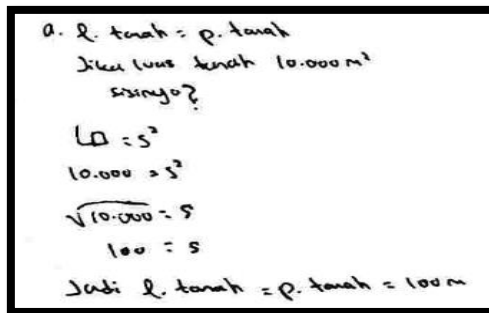 a. l. tanah = p. tanah
Jika luas tanah 10.000 m²
sisinya?
L□ = s²
10.000 = s²
√10.000 = s
100 = s
Jadi l. tanah = p. tanah = 100 m